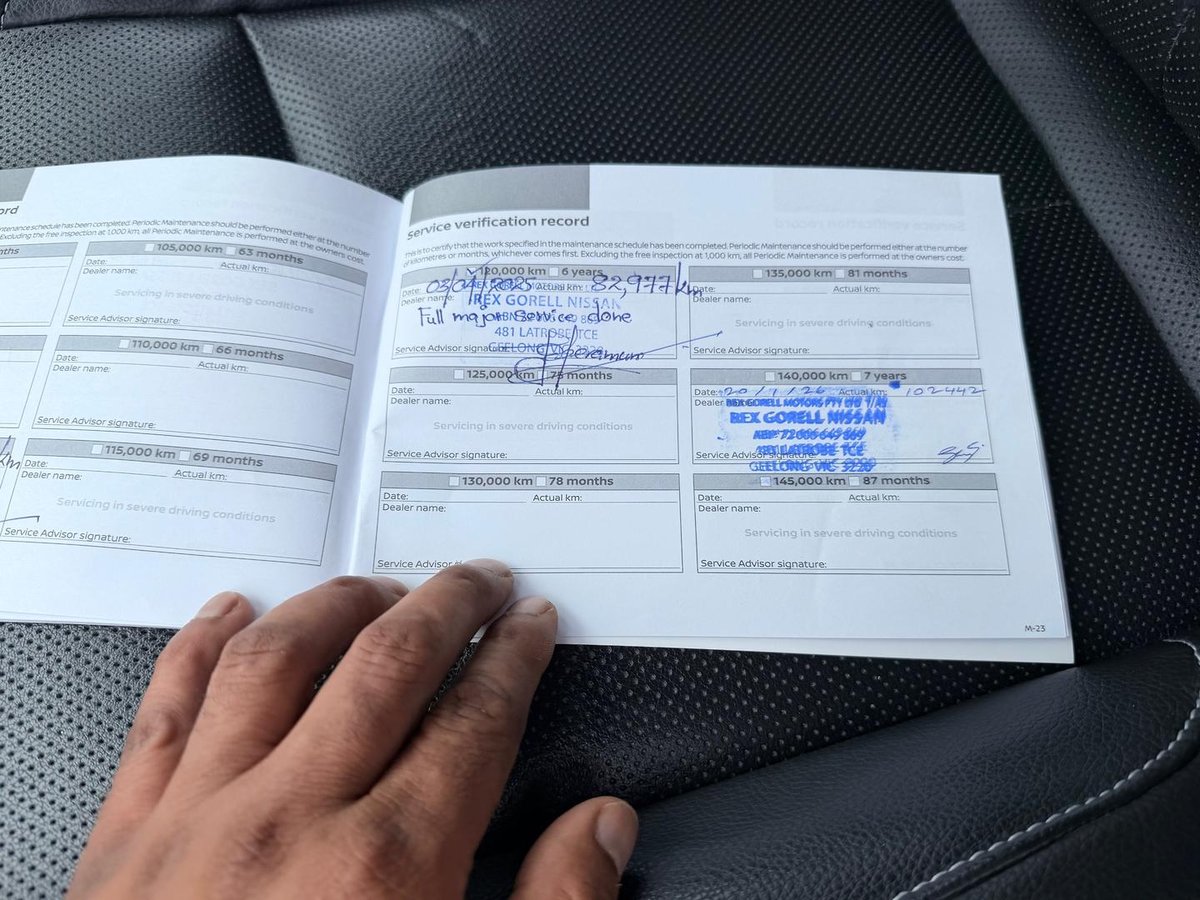 ord
ntenance schedule has been completed. Periodic Maintenance should be performed either at the number
Excluding the free inspection at 1,000 km, all Periodic Maintenance is performed at the owners cost.
months
105,000 km 63 months
Date: Actual km:
Dealer name:
Servicing in severe driving conditions
Service Advisor signature:
110,000 km 66 months
Date: Actual km:
Dealer name:
Service Advisor signature:
km
115,000 km 69 months
Date: Actual km:
Dealer name:
Servicing in severe driving conditions
Service Advisor signature:
Service verification record
This is to certify that the work specified in the maintenance schedule has been completed. Periodic Maintenance should be performed either at the number
of kilometres or months, whichever comes first. Excluding the free inspection at 1,000 km, all Periodic Maintenance is performed at the owners cost.
120,000 km 6 years
Date: 03/04/2025 Actual km: 82,977km
Dealer name:
REX GORELL NISSAN
Full major service done
481 LATROBE TCE
Service Advisor signature:
GEELONG VIC 3220
125,000 km 75 months
Date: Actual km:
Dealer name:
Servicing in severe driving conditions
Service Advisor signature:
130,000 km 78 months
Date: Actual km:
Dealer name:
Service Advisor
135,000 km 81 months
Date: Actual km:
Dealer name:
Servicing in severe driving conditions
Service Advisor signature:
140,000 km 7 years
Date: 20/1/26 Actual km: 102442
Dealer
REX GORELL MOTORS PTY LTD T/AS
REX GORELL NISSAN
481 LATROBE TCE
Service Advisor signature:
GEELONG VIC 3220
145,000 km 87 months
Date: Actual km:
Dealer name:
Servicing in severe driving conditions
Service Advisor signature:
M-23